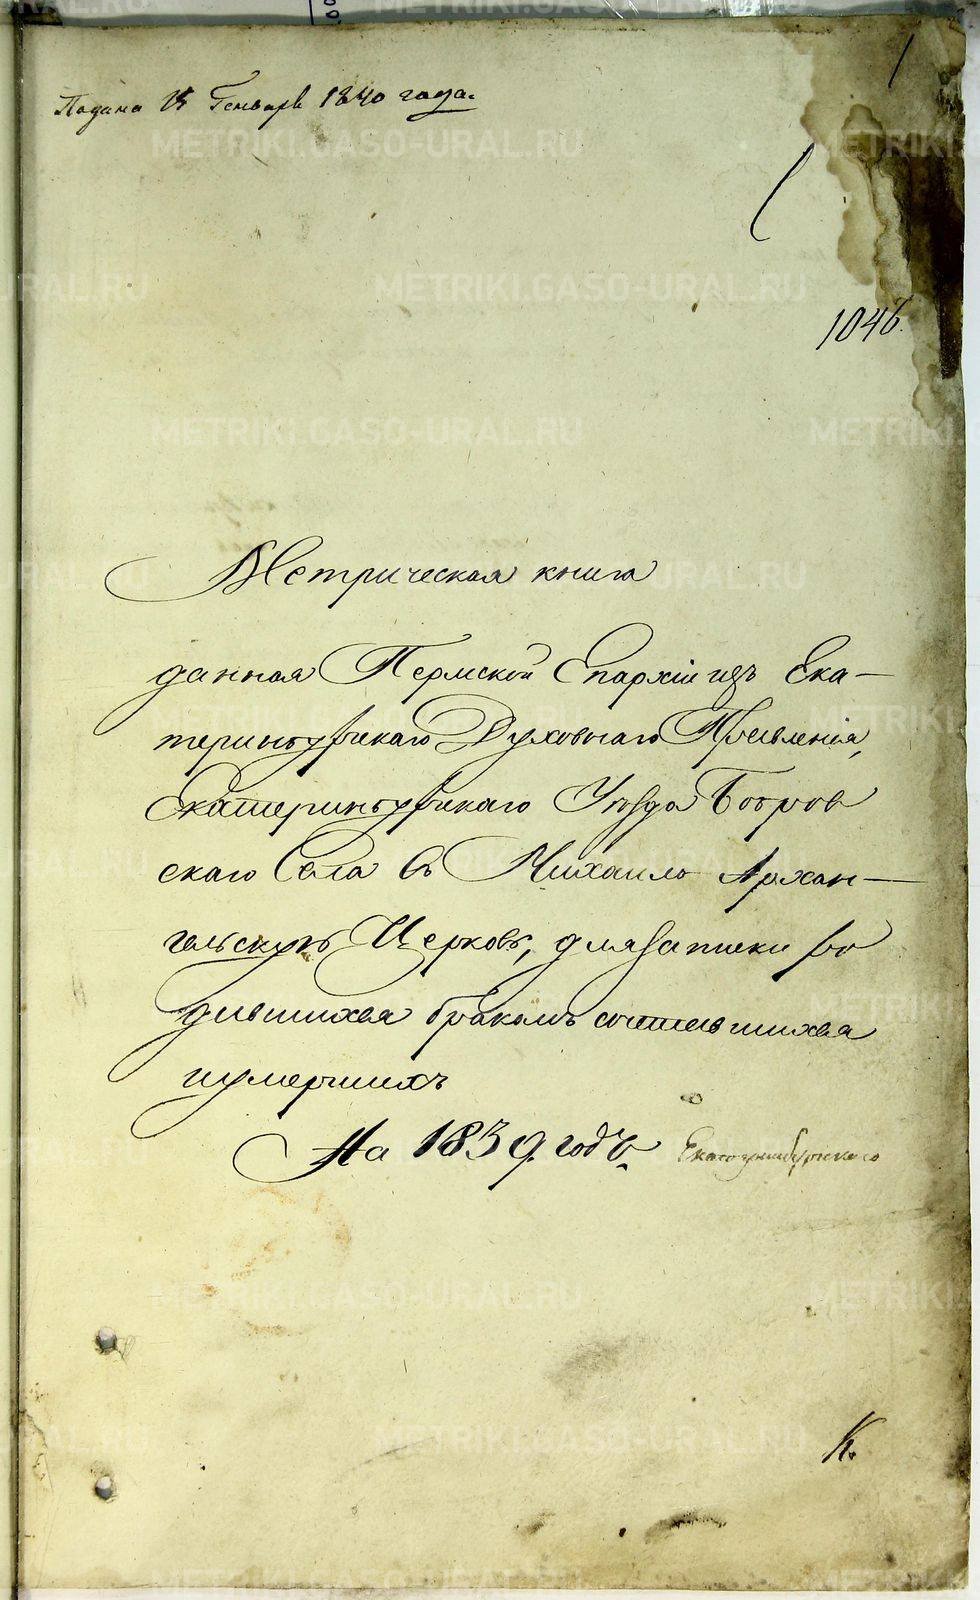 Подана 15 Генваря 1840 года.
1
1046.
Метрическая книга
данная Пермской Епархіи изъ Ека-
теринбургскаго Духовнаго Правленія,
Екатеринбургскаго Уѣзда Бобров
скаго Села въ Михаило Архан-
гельскую Церковь, для записки ро
дившихся бракомъ сочетавшихся
и умершихъ
На 1839. годъ.
Екатеринбургскаго
К.
METRIKI.GASO-URAL.RU